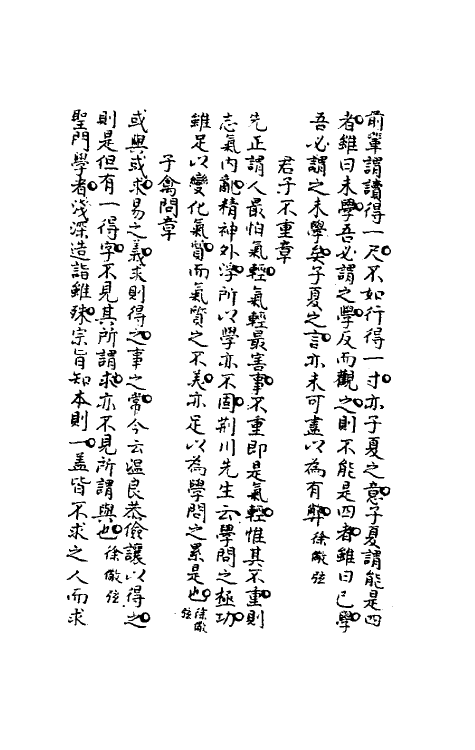 前輩謂讀得一尺不如行得一寸亦子夏之意子夏謂能是四
者雖曰未學吾必謂之學反而觀之則不能是四者雖曰已學
吾必謂之未學矣子夏之言亦未可盡以為有弊徐儆弦
君子不重章
先正謂人最怕氣輕氣輕最害事不重即是氣輕惟其不重則
志氣內亂精神外浮所以學亦不固荊川先生云學問之極功
雖足以變化氣質而氣質之不美亦足以為學問之累是也徐儆弦
子禽問章
或與或求易之義求則得之事之常今云溫良恭儉讓以得之
則是但有一得字不見其所謂求亦不見所謂與也徐儆弦
聖門學者淺深造詣雖殊宗旨知本則一蓋皆不求之人而求